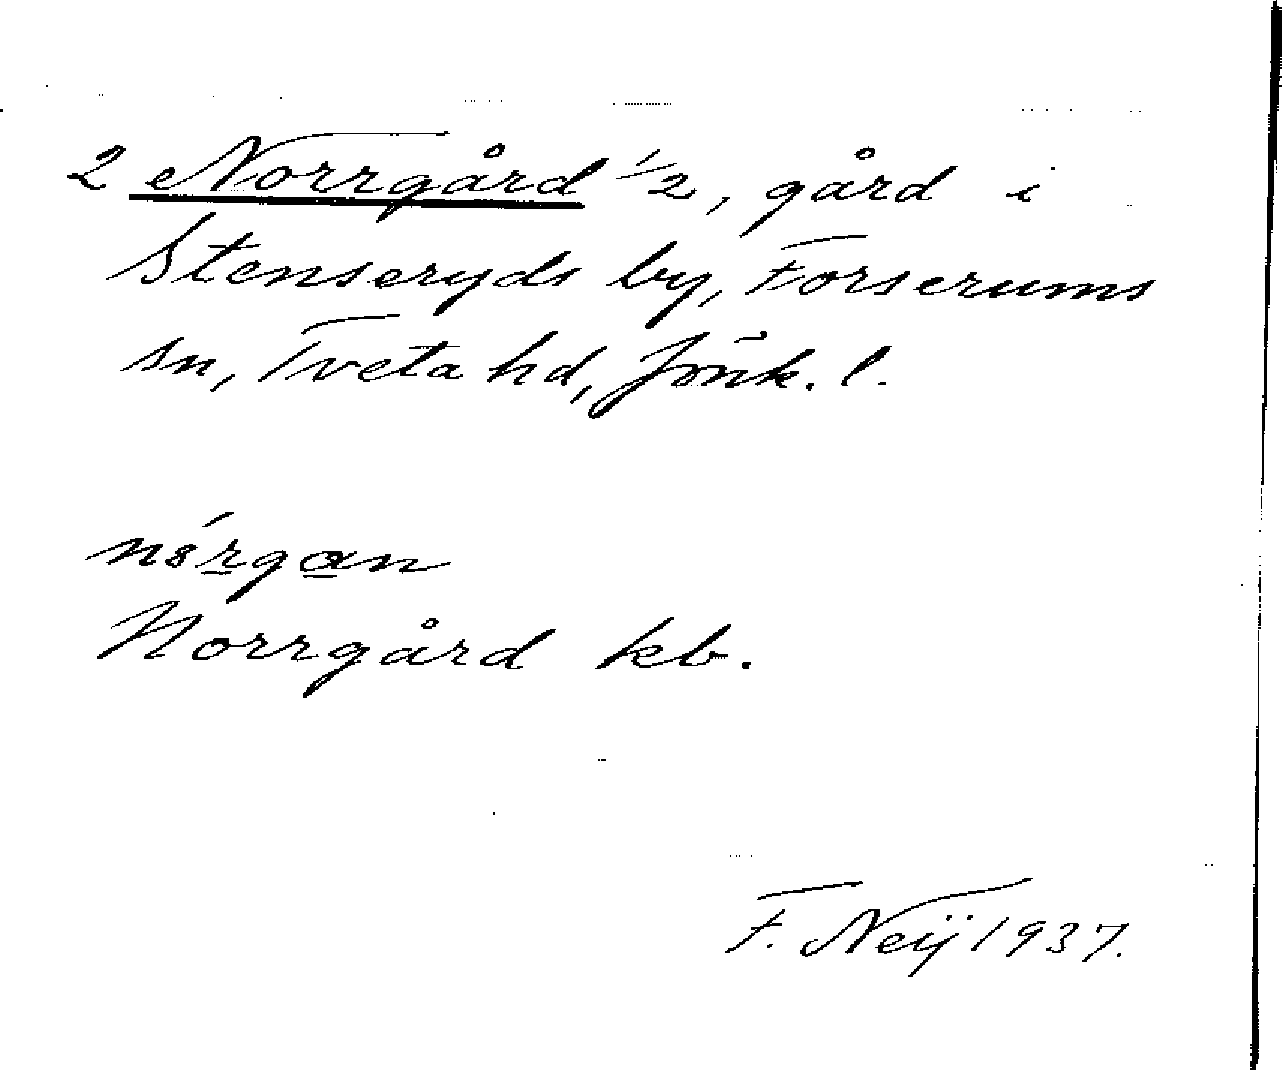 2 Norrgård 1/2, gård i
Stenseryds by, Forserums
sn, Tveta hd, Jönk. l.
Norrgård kb.
F. Neij 1937.